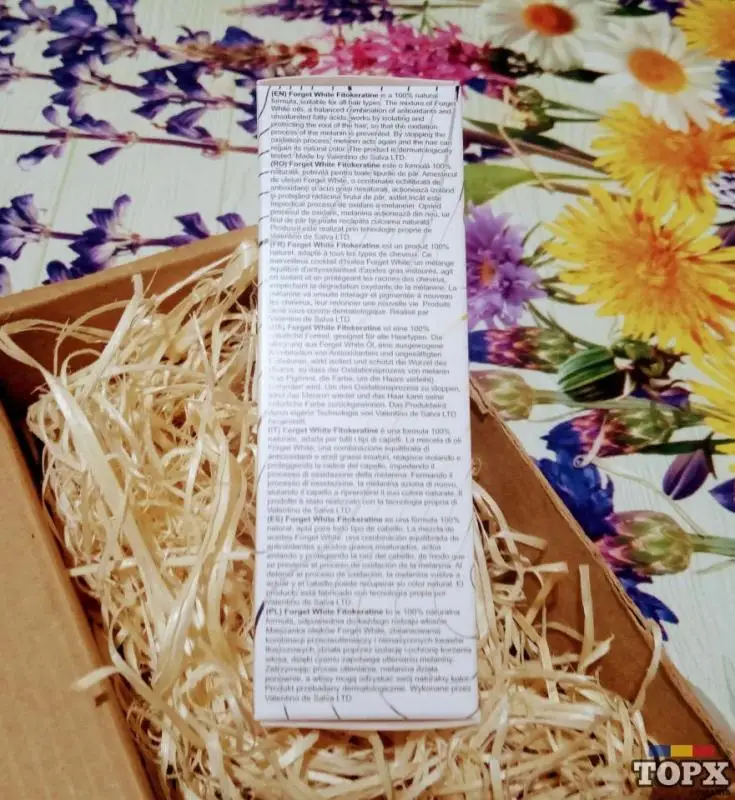 (EN) Forget White Fitokeratine is a 100% natural
formula, suitable for all hair types. The mixture of Forget
White oils, a balanced combination of antioxidants and
unsaturated fatty acids, works by isolating and
protecting the root of the hair, so that the oxidation
process of the melanin is prevented. By stopping the
oxidation process, melanin acts again and the hair can
regain its natural color. The product is dermatologically
tested. Made by Valentino de Salva LTD.
(RO) Forget White Fitokeratine este o formulă 100%
naturală, potrivită pentru toate tipurile de păr. Amestecul
de uleiuri Forget White, o combinație echilibrată de
antioxidanți și acizi grași nesaturați, acționează izolând
și protejând rădăcina firului de păr, astfel încât este
împiedicat procesul de oxidare a melaninei. Oprind
procesul de oxidare, melanina acționează din nou, iar
firul de păr își poate recăpăta culoarea naturală.
Produsul este realizat prin tehnologie proprie de
Valentino de Salva LTD.
(FR) Forget White Fitokeratine est un produit 100%
naturel, adapté à tous les types de cheveux. Ce
merveilleux cocktail d'huiles Forget White, un mélange
équilibré d'antioxydants et d'acides gras insaturés, agit
en isolant et en protégeant les racines des cheveux,
empêchant la dégradation oxydante de la mélanine. La
mélanine va ensuite interagir et pigmenter à nouveau
les cheveux, leur redonner une nouvelle vie. Produits
sous contrôle dermatologique. Réalisé par
Valentino de Salva LTD.
Forget White Fitokeratine ist eine 100%
natürliche Formel, geeignet für alle Haartypen. Die
Mischung aus Forget White Öl, eine ausgewogene
Kombination von Antioxidantien und ungesättigten
Fettsäuren, wirkt isoliert und schützt die Wurzel des
Haares, so dass der Oxidationsprozess von melanin
(das Pigment, die Farbe, um die Haare verleiht)
verhindert wird. Um den Oxidationsprozess zu stoppen,
wird das Melanin wieder und das Haar kann seine
natürliche Farbe zurückgewinnen. Das Produkt wird
durch eigene Technologie von Valentino de Salva LTD
hergestellt.
(IT) Forget White Fitokeratine è una formula 100%
naturale, adatta per tutti i tipi di capelli. La miscela di oli
Forget White, una combinazione equilibrata di
antiossidanti e acidi grassi insaturi, reagisce isolando e
proteggendo la radice del capello, impedendo il
processo di ossidazione della melanina. Fermando il
processo di ossidazione, la melanina aziona di nuovo,
aiutando il capello a riprendere il suo colore naturale. Il
prodotto è stato realizzato con la tecnologia propria di
Valentino de Salva LTD.
(ES) Forget White Fitokeratine es una fórmula 100%
natural, apta para todo tipo de cabello. La mezcla de
aceites Forget White, una combinación equilibrada de
antioxidantes y ácidos grasos insaturados, actúa
aislando y protegiendo la raíz del cabello, de modo que
se previene el proceso de oxidación de la melanina. Al
detener el proceso de oxidación, la melanina vuelve a
actuar y el cabello puede recuperar su color natural. El
producto está fabricado con tecnología propia por
Valentino de Salva LTD.
(PL) Forget White Fitokeratine to w 100% naturalna
formuła, odpowiednia do każdego rodzaju włosów.
Mieszanka olejków Forget White, zbilansowana
kombinacji przeciwutleniaczy i nienasyconych kwasów
tłuszczowych, działa poprzez izolację i ochronę korzenia
włosa, dzięki czemu zapobiega utlenianiu melaniny.
Zatrzymując proces utleniania, melanina działa
ponownie, a włosy mogą odzyskać swój naturalny kolor.
Produkt przebadany dermatologicznie. Wykonane przez
Valentino de Salva LTD.
TOPX